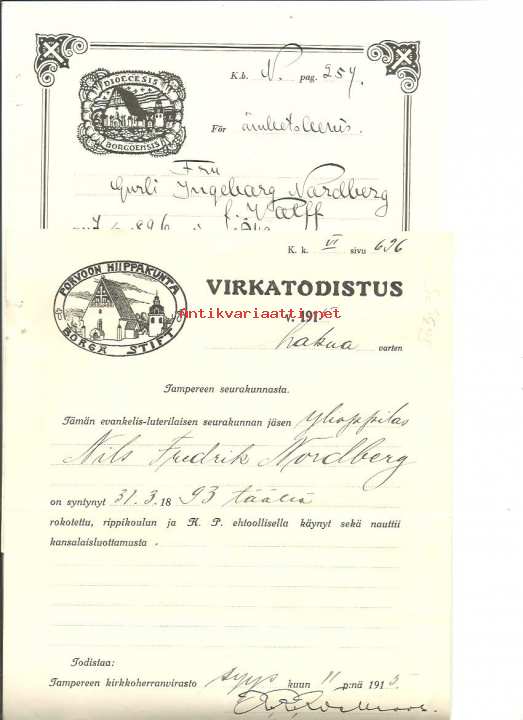 K.b. N. pag. 254.
DIOECESIS
BORGOENSIS
För ämbetsbevis.
Fru
Gurli Ingeborg Nordberg
f. Wolff
K. k. VI sivu 696
PORVOON HIIPPAKUNTA
BORGÅ STIFT
VIRKATODISTUS
Antikvariaatti.net
v. 191
hakua varten
Tampereen seurakunnasta.
Tämän evankelis-luterilaisen seurakunnan jäsen ylioppilas
Nils Fredrik Nordberg
on syntynyt 31.3.18 93 täällä
rokotettu, rippikoulun ja H. P. ehtoollisella käynyt sekä nauttii
kansalaisluottamusta .
Todistaa:
Tampereen kirkkoherranvirasto syys kuun 11 p:nä 1915.